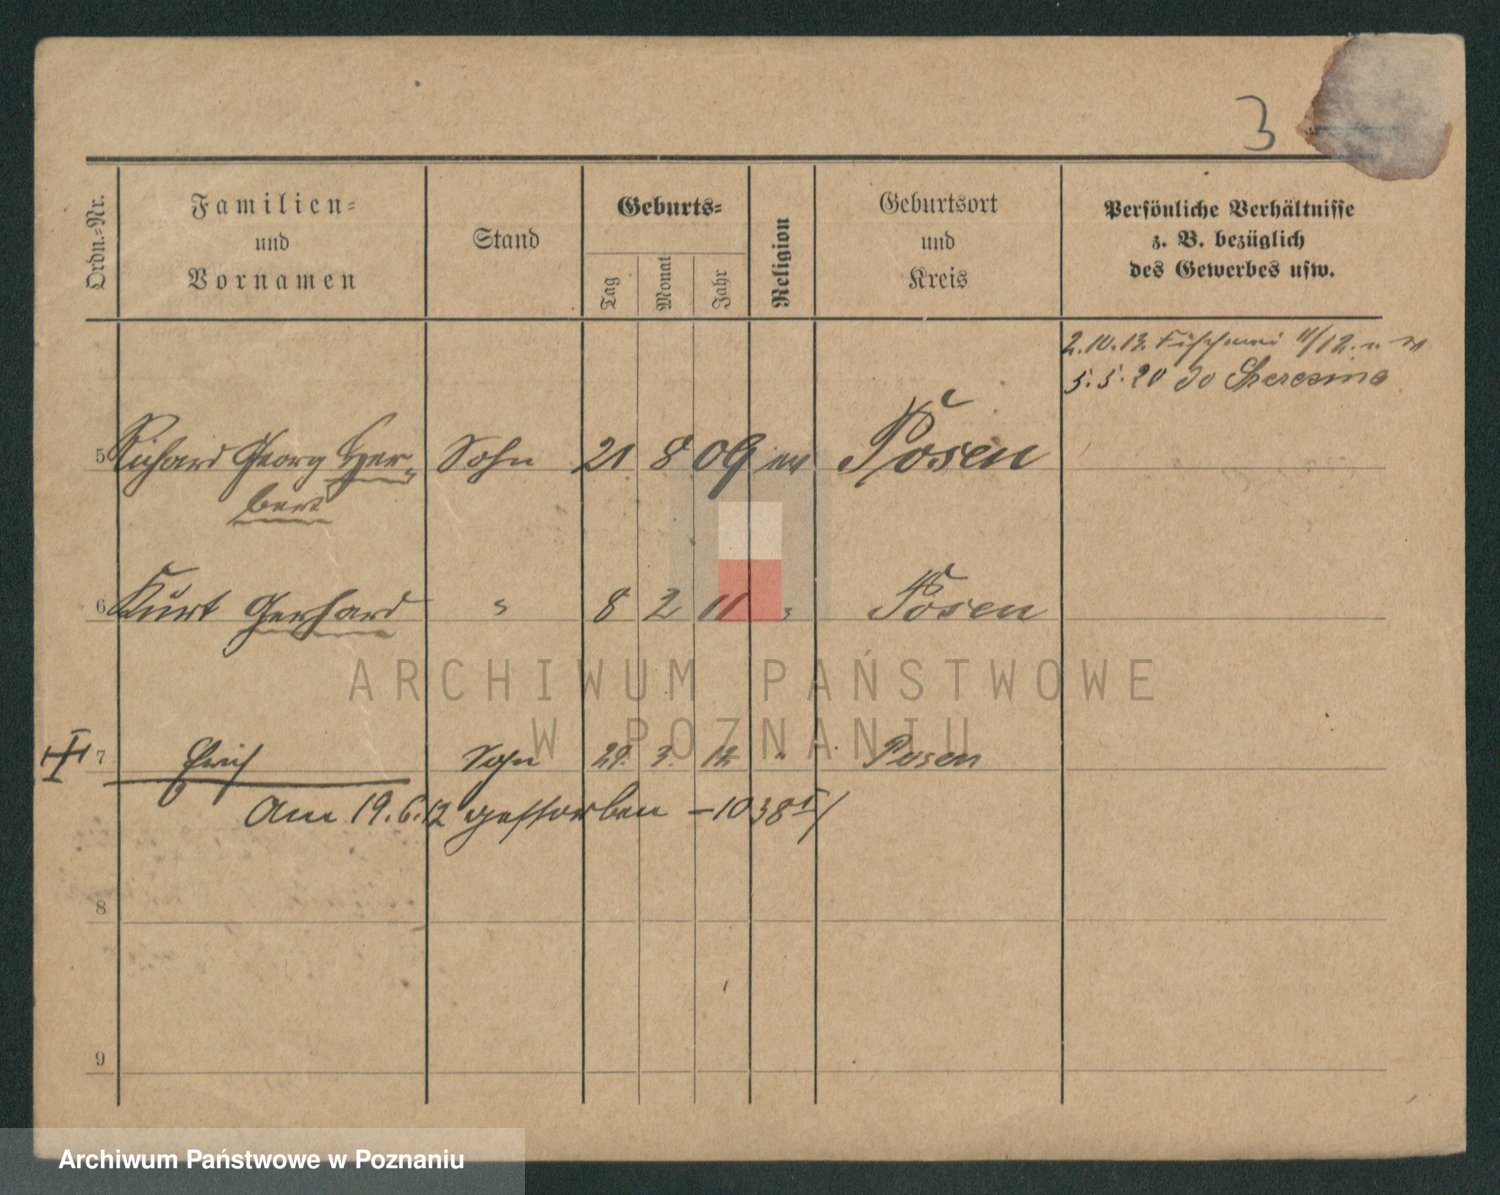 3
Ordn.-Nr.
Familien-
und
Vornamen
Stand
Geburts-
Tag
Monat
Jahr
Religion
Geburtsort
und
Kreis
Persönliche Verhältnisse
z. B. bezüglich
des Gewerbes usw.
2.10.13. 11/12.
5.5.20 do
5 Richard Georg Her- Sohn 21 8 09 ev Posen
bert
6 Kurt Gerhard " 8 2 11 " Posen
ARCHIWUM PAŃSTWOWE
W POZNANIU
7 Erich Sohn 29. 3. 12 " Posen
Am 19.6.12 gestorben - 1038
8
9
Archiwum Państwowe w Poznaniu